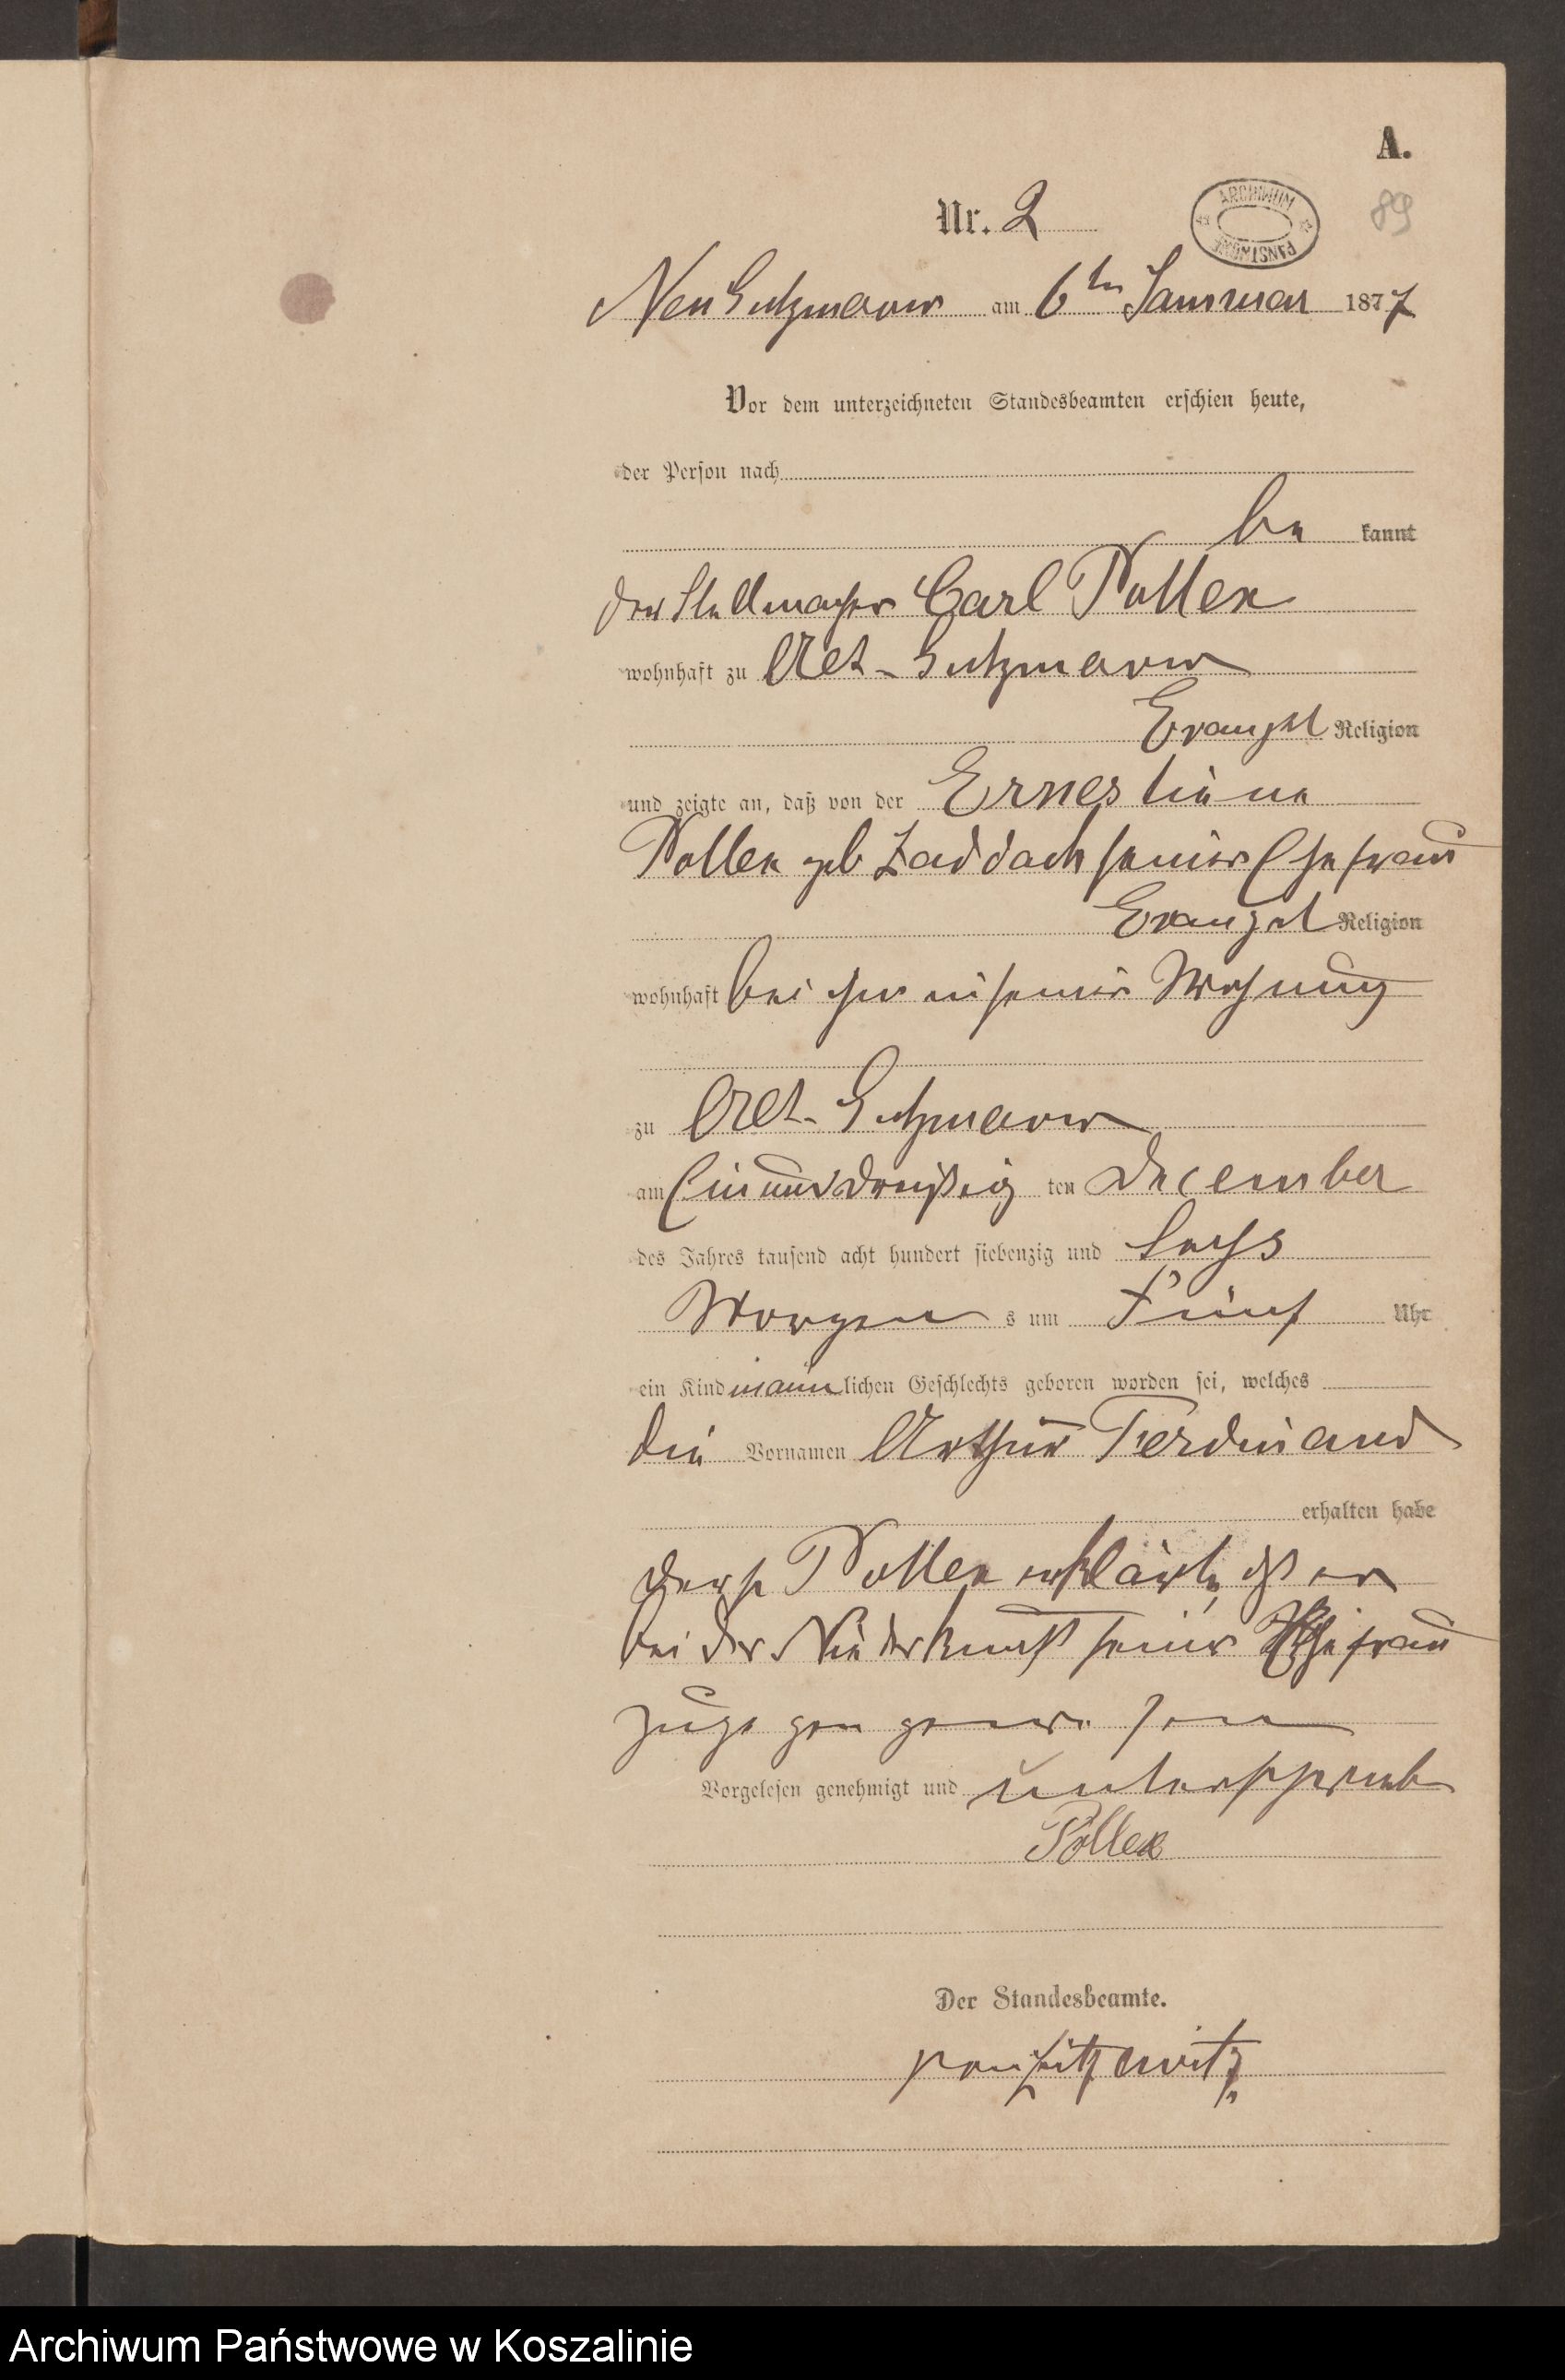 A.
Nr. 2
ARCHIWUM PAŃSTWOWE
89
Neu Gutzmerow am 6ten Januar 1877
Vor dem unterzeichneten Standesbeamten erschien heute,
der Person nach
be kannt
der Stellmacher Carl Pollex
wohnhaft zu Alt-Gutzmerow
Evangel Religion
und zeigte an, daß von der Ernestiene
Pollex geb Zaddach seiner Ehefrau
Evangel Religion
wohnhaft bei ihm in seiner Wohnung
zu Alt-Gutzmerow
am Einunddreißig ten December
des Jahres tausend acht hundert siebenzig und sechs
Morgen s um Fünf Uhr
ein Kind männlichen Geschlechts geboren worden sei, welches
die Vornamen Arthur Ferdinand
erhalten habe
Pollex erklärte, daß er
bei der Niederkunft seiner Ehefrau
zugegen gewesen
Vorgelesen genehmigt und unterschrieben
Pollex
Der Standesbeamte.
von Zitzewitz
Archiwum Państwowe w Koszalinie